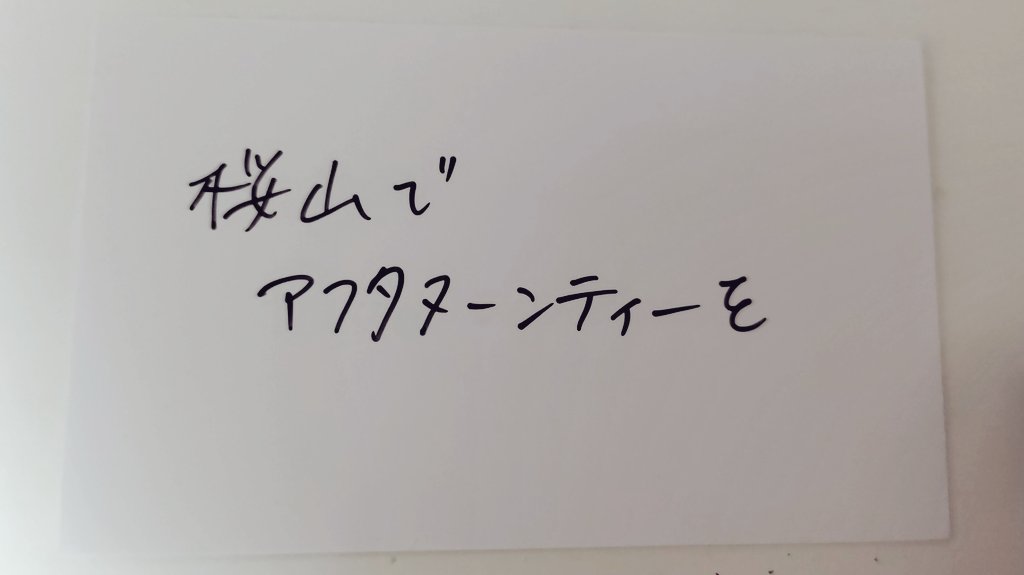 桜山で
アフタヌーンティーを